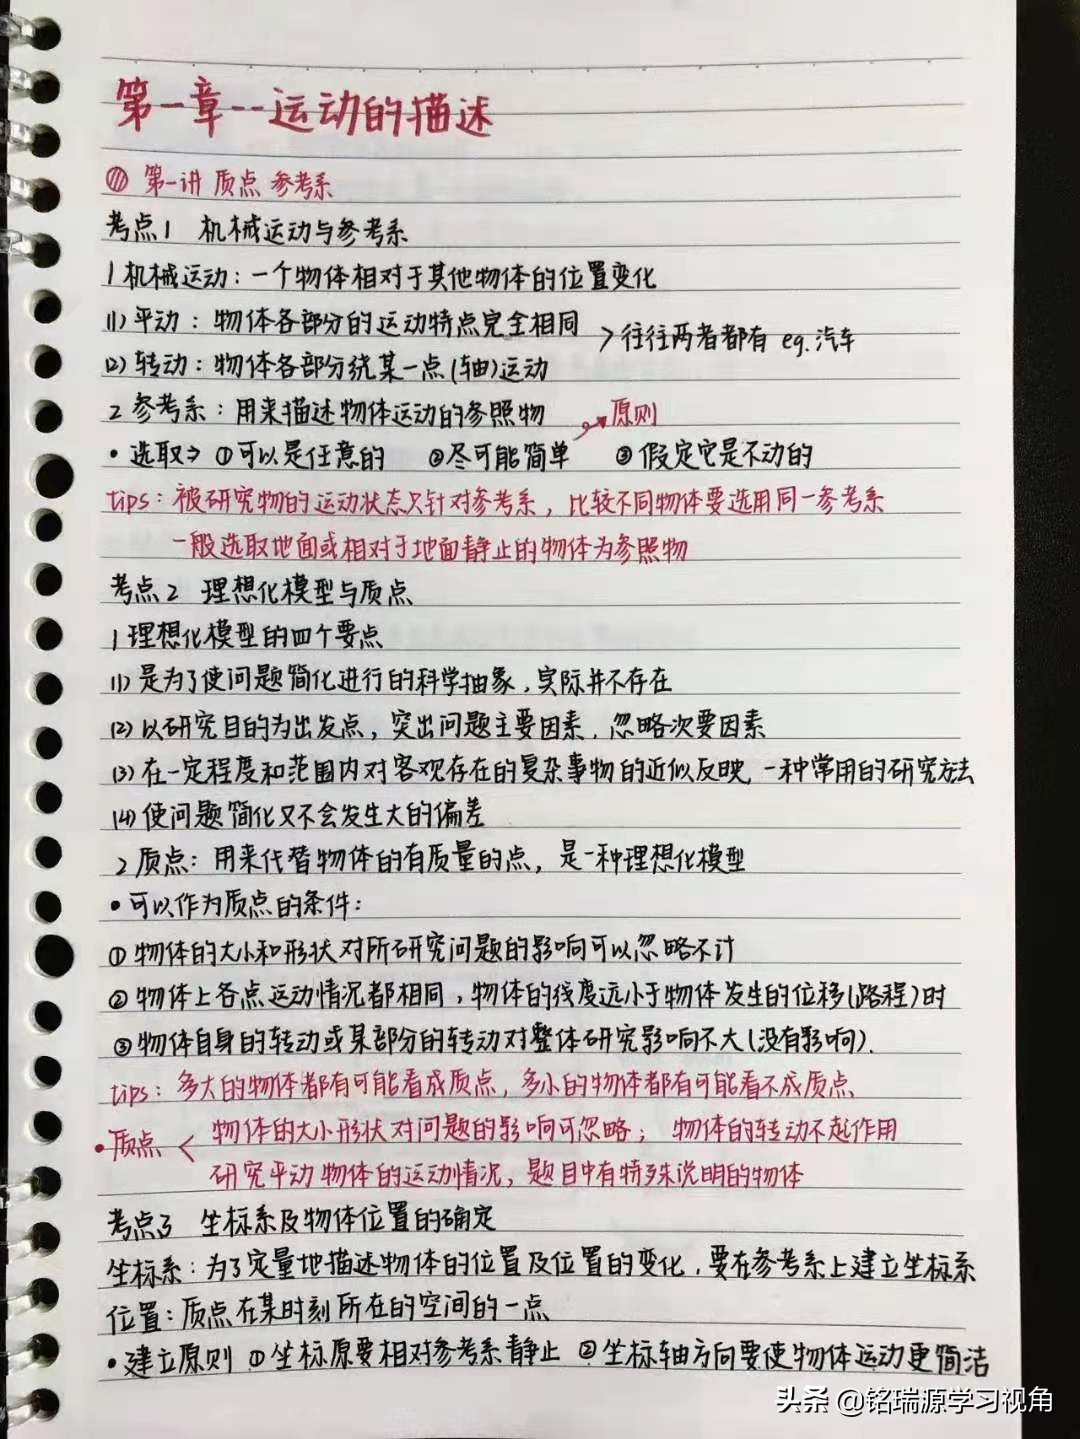 第一章--运动的描述
第一讲 质点 参考系
考点1 机械运动与参考系
1 机械运动：一个物体相对于其他物体的位置变化
(1) 平动：物体各部分的运动特点完全相同
>往往两者都有 eg.汽车
(2) 转动：物体各部分绕某一点(轴)运动
2 参考系：用来描述物体运动的参照物
→原则
• 选取⇒ ①可以是任意的 ②尽可能简单 ③假定它是不动的
tips：被研究物的运动状态只针对参考系，比较不同物体要选用同一参考系
一般选取地面或相对于地面静止的物体为参照物
考点2 理想化模型与质点
1 理想化模型的四个要点
(1) 是为了使问题简化进行的科学抽象，实际并不存在
(2) 以研究目的为出发点，突出问题主要因素，忽略次要因素
(3) 在一定程度和范围内对客观存在的复杂事物的近似反映，一种常用的研究方法
(4) 使问题简化又不会发生大的偏差
2 质点：用来代替物体的有质量的点，是一种理想化模型
• 可以作为质点的条件：
① 物体的大小和形状对所研究问题的影响可以忽略不计
② 物体上各点运动情况都相同，物体的线度远小于物体发生的位移(路程)时
③ 物体自身的转动或某部分的转动对整体研究影响不大(没有影响).
tips：多大的物体都有可能看成质点，多小的物体都有可能看不成质点
• 质点 < 物体的大小形状对问题的影响可忽略；物体的转动不起作用
研究平动物体的运动情况，题目中有特殊说明的物体
考点3 坐标系及物体位置的确定
坐标系：为了定量地描述物体的位置及位置的变化，要在参考系上建立坐标系
位置：质点在某时刻所在的空间的一点
• 建立原则 ①坐标原要相对参考系静止 ②坐标轴方向要使物体运动更简洁
头条 @铭瑞源学习视角